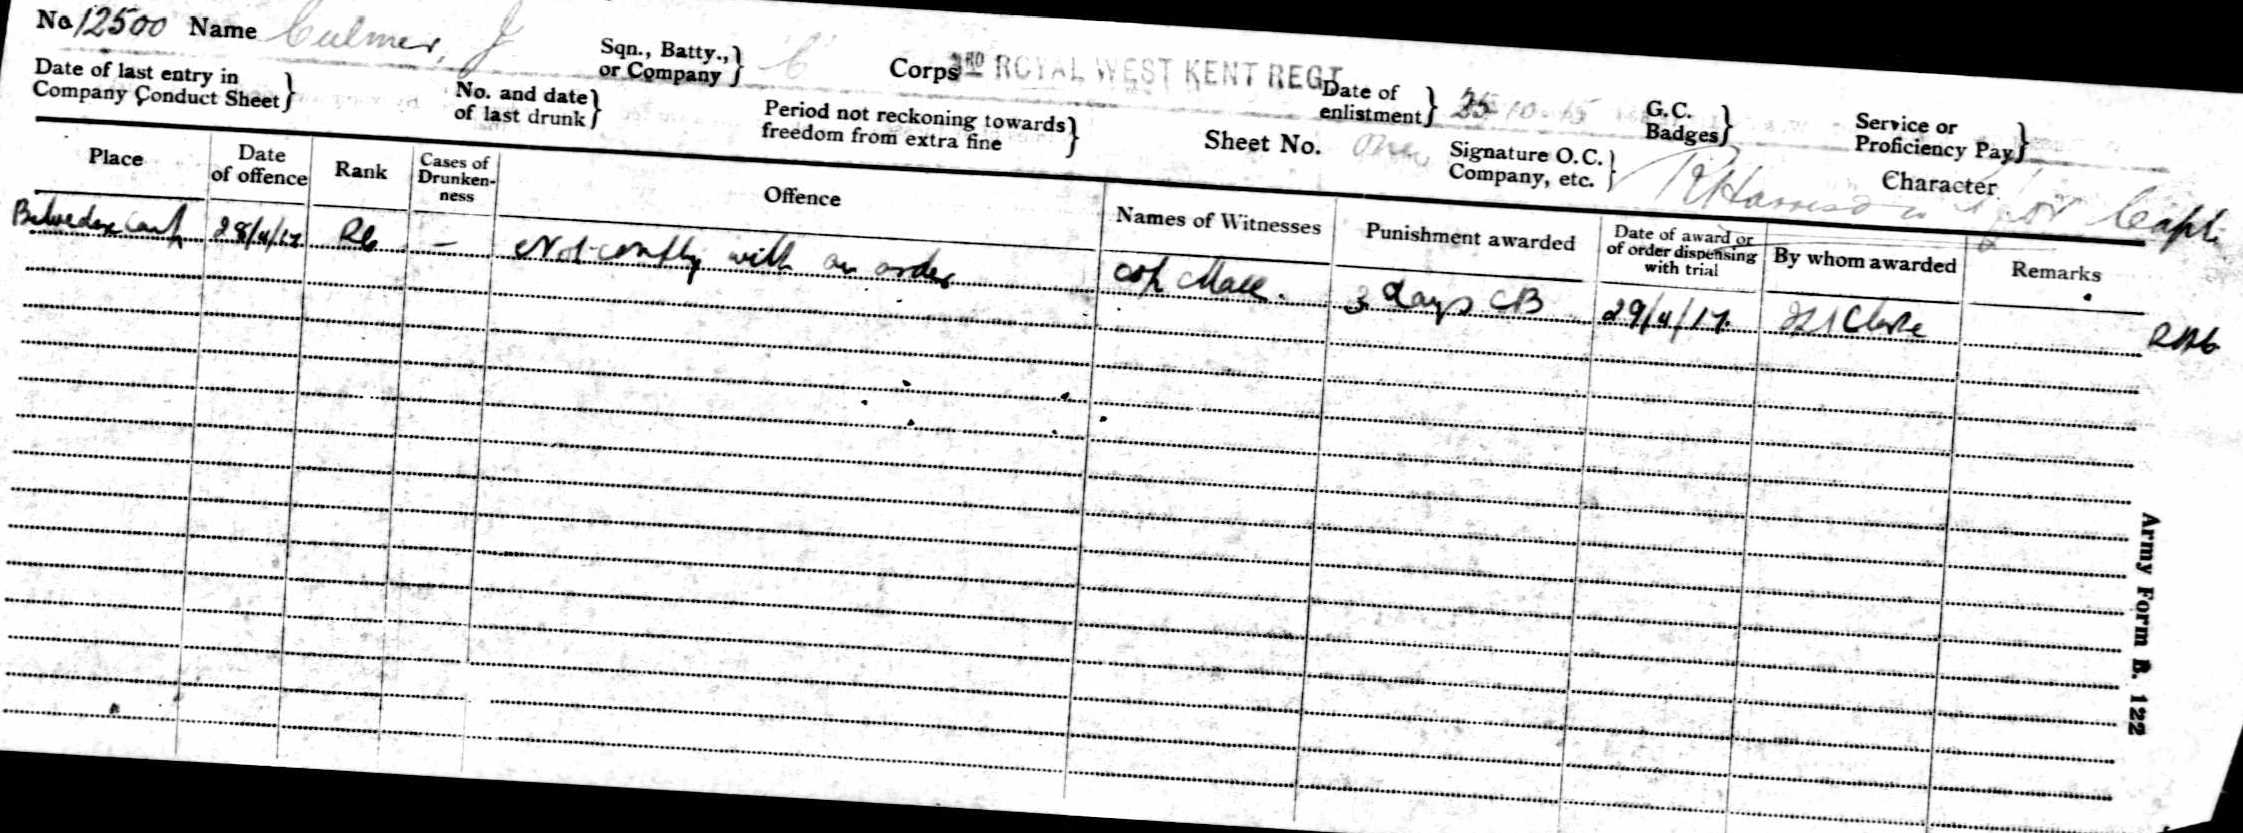 No 12500 Name Culmer, J Sqn., Batty., or Company } C Corps 3RD ROYAL WEST KENT REGT Date of enlistment } 25-10-15 G.C. Badges } Service or Proficiency Pay }
Date of last entry in Company Conduct Sheet } No. and date of last drunk } Period not reckoning towards freedom from extra fine } Sheet No. One Signature O.C. Company, etc. } R Harrison Lt for Capt. Character
Place Date of offence Rank Cases of Drunken-ness Offence Names of Witnesses Punishment awarded Date of award or of order dispensing with trial By whom awarded Remarks
Belvedere Camp 28/4/17 — Not complying with an order 3 days CB 29/4/17
Army Form B. 122